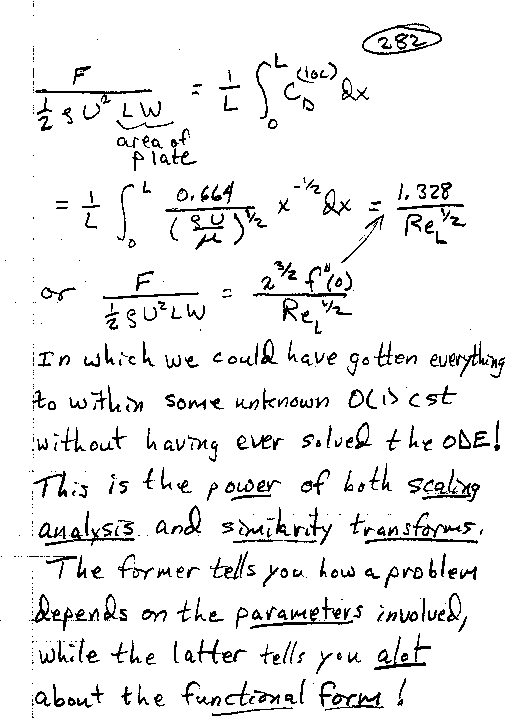 282
F / (½ ρU² LW) = 1/L ∫₀ᴸ C_D^(loc) dx
area of
plate
= 1/L ∫₀ᴸ 0.664 / (ρU/μ)^½ x^-½ dx = 1.328 / Re_L^½
or F / (½ ρU²LW) = 2^3/2 f''(0) / Re_L^½
In which we could have gotten everything
to within some unknown O(1) cst
without having ever solved the ODE!
This is the power of both scaling
analysis and similarity transforms.
The former tells you how a problem
depends on the parameters involved,
while the latter tells you alot
about the functional form!